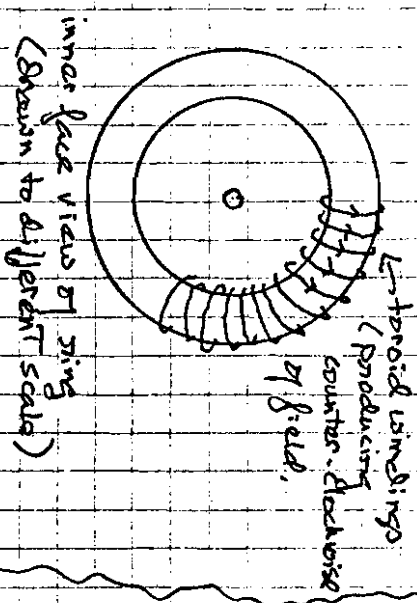 toroid windings
(producing
counter-clockwise
θ field.
inner face view of ring
(drawn to different scale)